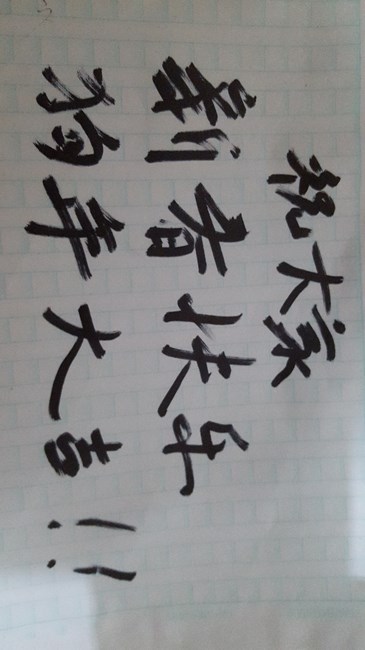 祝大家
新春快乐
狗年大吉!!